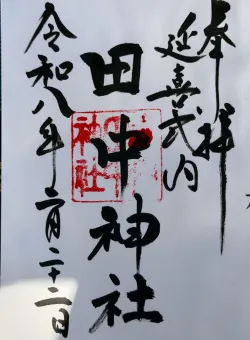 奉拝
延喜式内
田中神社
令和八年二月二十二日